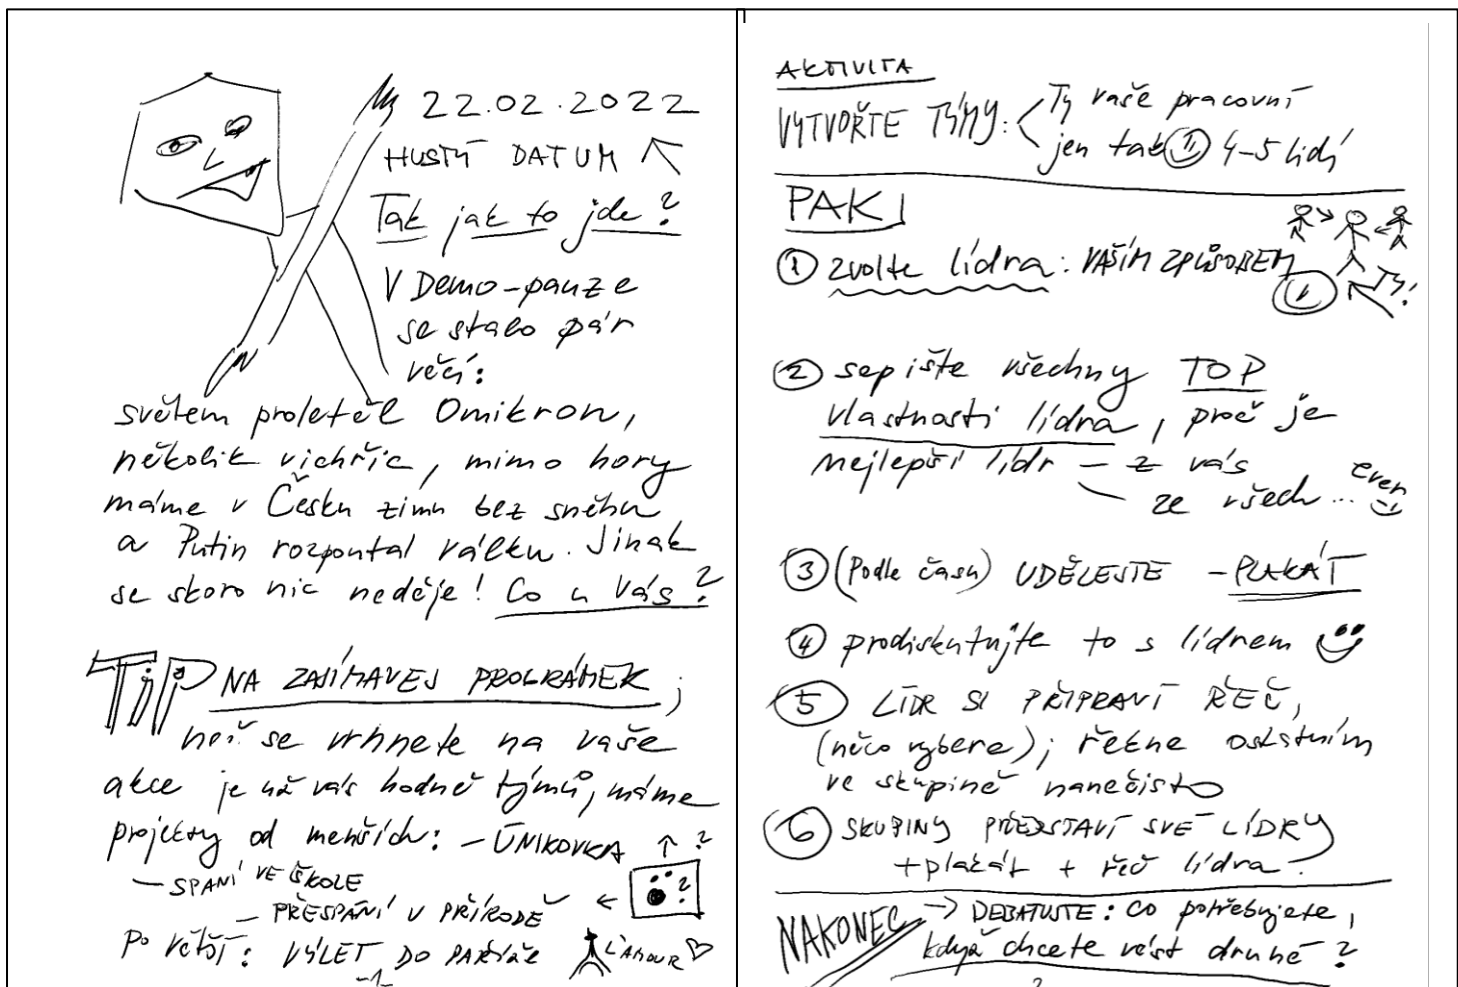 22.02.2022
HUSTÝ DATUM
Tak jak to jde?
V Demo-pauze
se stalo pár
věcí:
světem proletěl Omikron,
několik vichřic, mimo hory
máme v Česku zimu bez sněhu
a Putin rozpoutal válku. Jinak
se skoro nic neděje! Co u vás?
TIP NA ZAJÍMAVEJ PROGRÁMEK;
než se vrhnete na vaše
akce je už vás hodně týmů, máme
projekty od menších: - ÚNIKOVKA ?
- SPANÍ VE ŠKOLE
?
- PŘESPÁNÍ V PŘÍRODĚ
Po větší: VÝLET DO PAŘÍŽE L'AMOUR
-1-
AKTIVITA
VYTVOŘTE TÝMY: Ty vaše pracovní
jen tak 4-5 lidí
PAK
1 zvolte lídra: VAŠÍM ZPŮSOBEM
1 TY!
2 sepište všechny TOP
vlastnosti lídra, proč je
nejlepší lídr - z vás
- ze všech... ever
3 (Podle času) UDĚLEJTE - PLAKÁT
4 prodiskutujte to s lídrem
5 LÍDR SI PŘIPRAVÍ ŘEČ,
(něco vybere); řekne ostatním
ve skupině nanečisto
6 SKUPINY PŘEDSTAVÍ SVÉ LÍDRY
+ plakát + řeč lídra.
NAKONEC → DEBATUJTE: co potřebujete,
když chcete vést druhé?